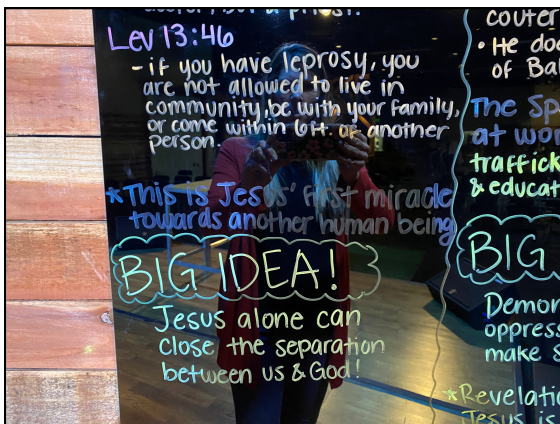 Lev 13:46
- if you have leprosy, you
are not allowed to live in
community, be with your family,
or come within 6ft. of another
person.
*This is Jesus' first miracle
towards another human being
BIG IDEA!
Jesus alone can
close the separation
between us & God!
• He
of
The
at
& educat
BIG
make
*Revelati
Jesus is